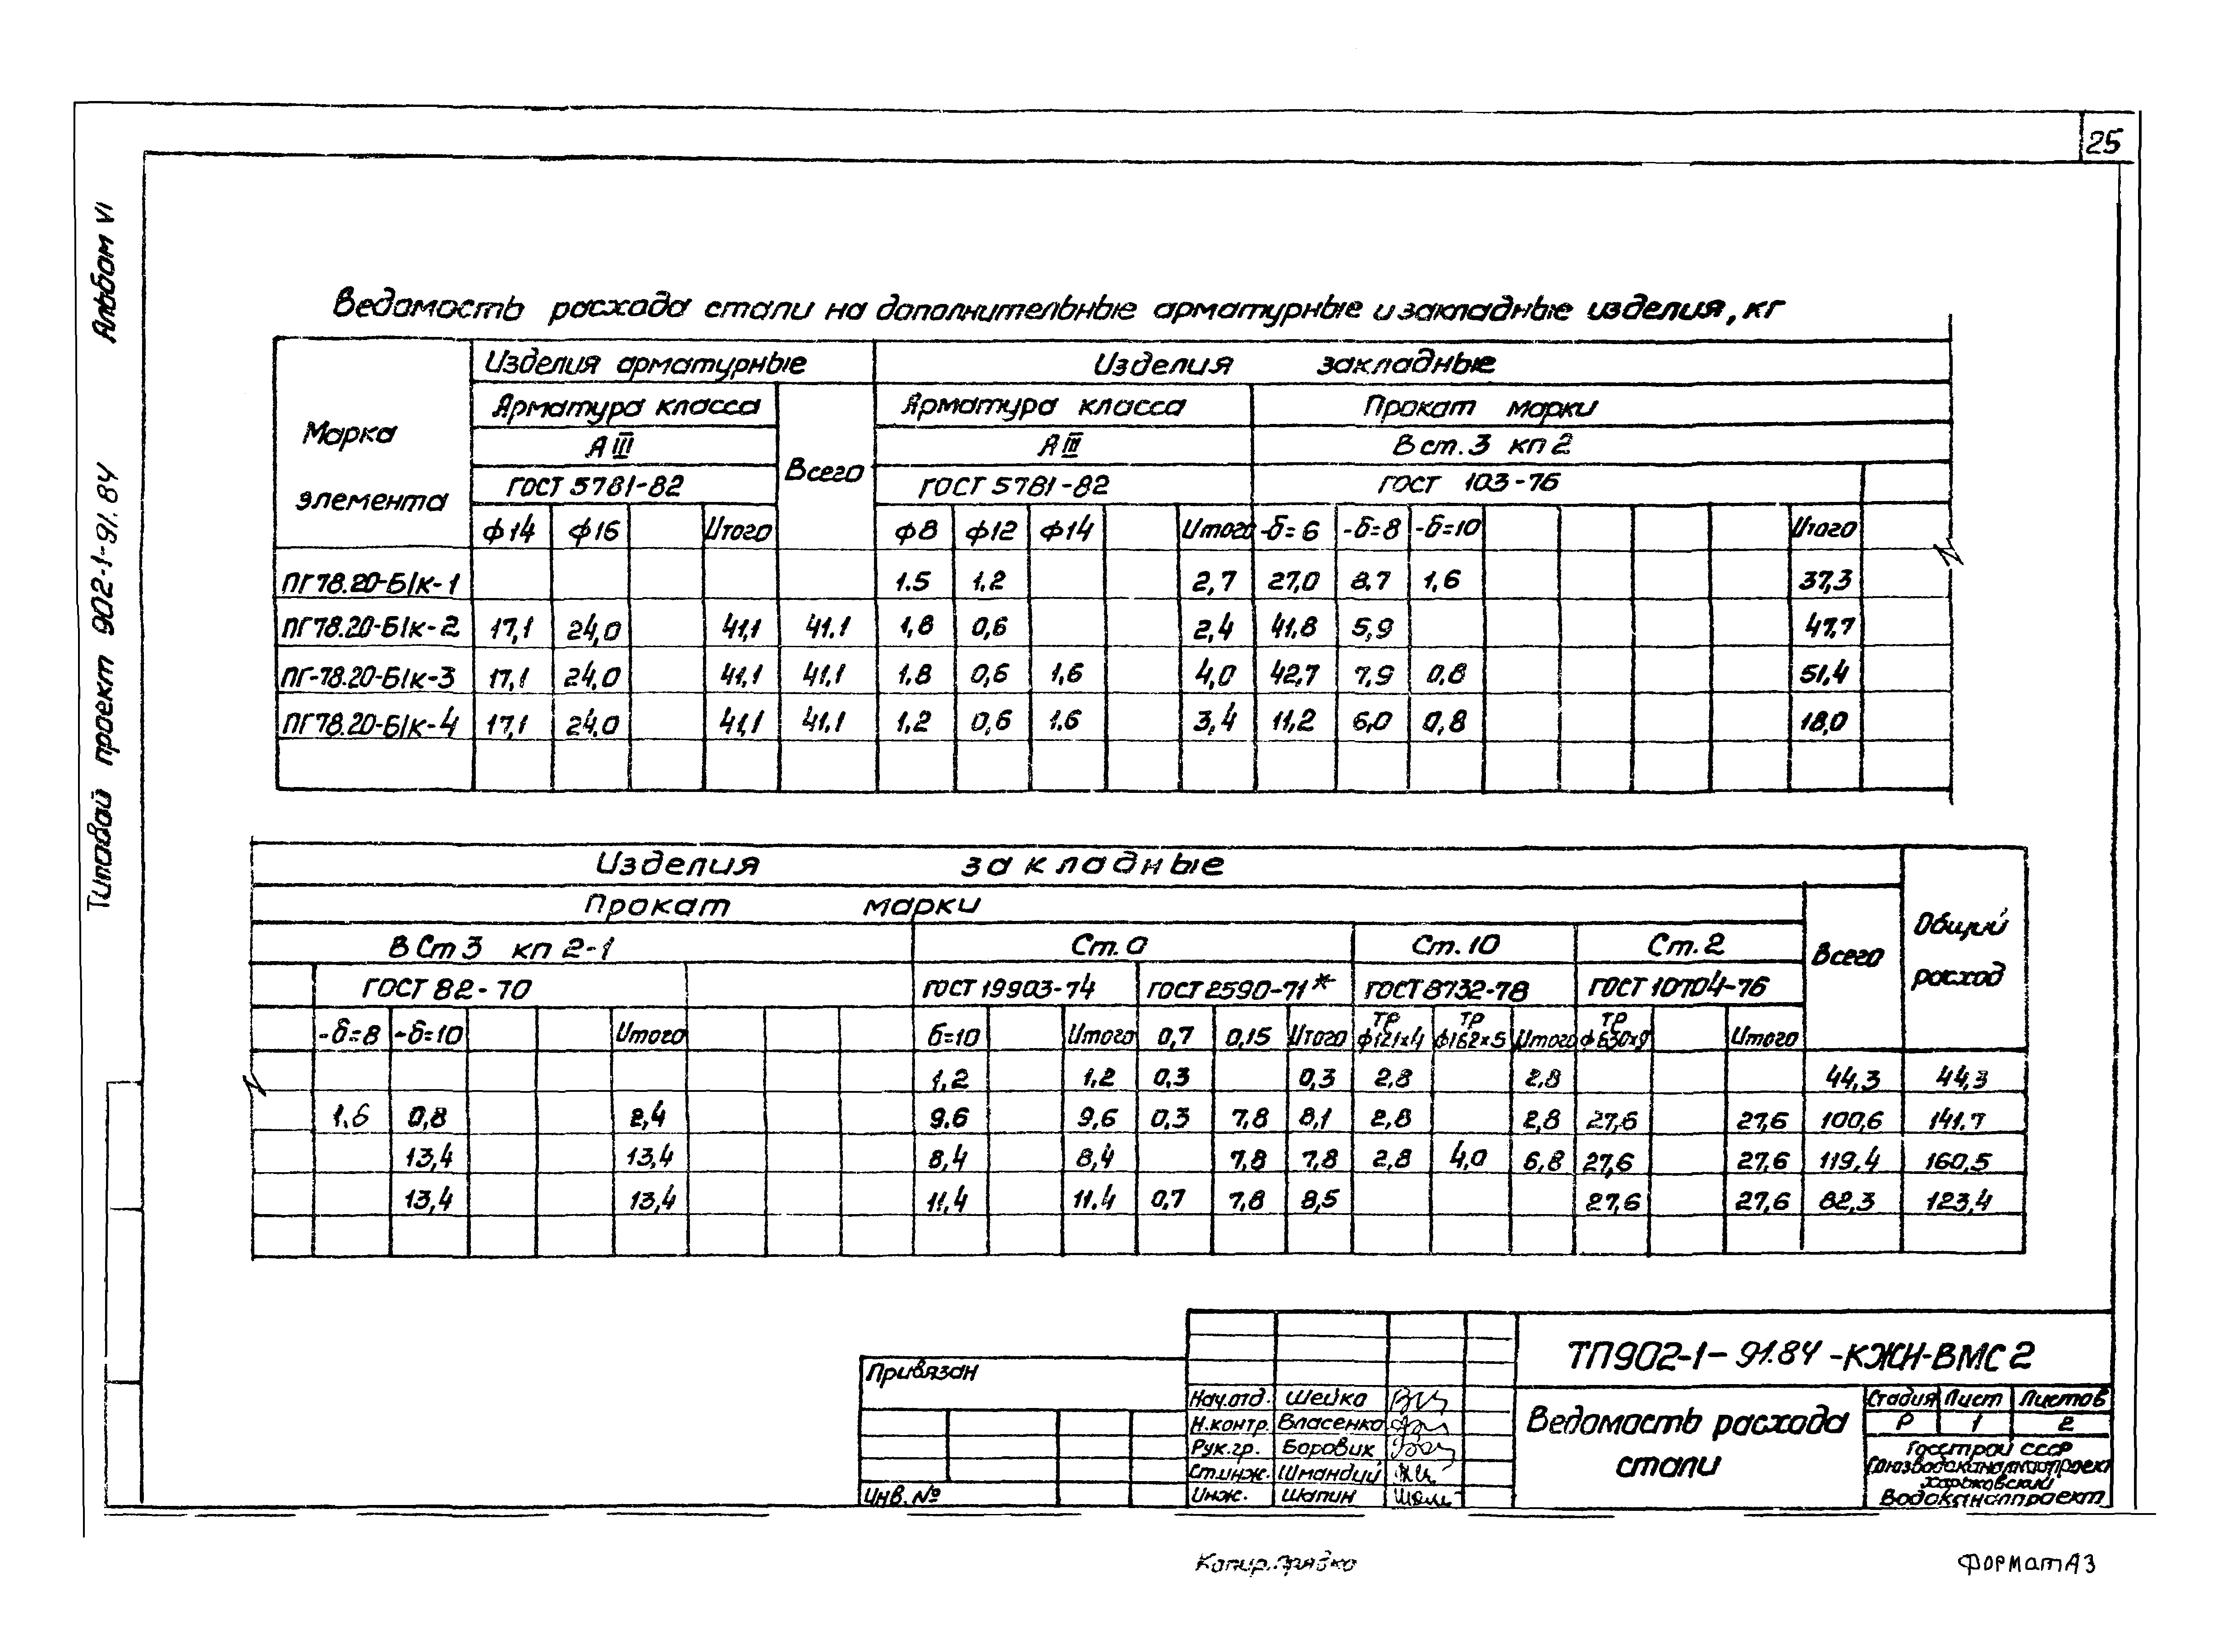 25
Альбом VI
Типовой проект 902-1-91.84
Ведомость расхода стали на дополнительные арматурные и закладные изделия, кг
Марка элемента
Изделия арматурные
Изделия закладные
Арматура класса
Всего
Арматура класса
Прокат марки
А III
А III
В ст.3 кп 2
ГОСТ 5781-82
ГОСТ 5781-82
ГОСТ 103-76
ф14 ф16 Итого ф8 ф12 ф14 Итого -δ=6 -δ=8 -δ=10 Итого
ПГ78.20-Б/к-1 1.5 1,2 2,7 27,0 8,7 1,6 37,3
ПГ78.20-Б/к-2 17,1 24,0 41,1 41.1 1,8 0,6 2,4 41,8 5,9 47,7
ПГ-78.20-Б/к-3 17,1 24,0 41,1 41,1 1,8 0,6 1,6 4,0 42,7 7,9 0,8 51,4
ПГ78.20-Б/к-4 17,1 24,0 41,1 41,1 1,2 0,6 1.6 3,4 11,2 6,0 0,8 18,0
Изделия закладные
Прокат марки
Всего
Общий расход
В Ст 3 кп 2-1
Ст.0
Ст.10
Ст.2
ГОСТ 82-70
ГОСТ 19903-74
ГОСТ 2590-71*
ГОСТ 8732-78
ГОСТ 10704-76
-δ=8 -δ=10 Итого б=10 Итого 0,7 0,15 Итого Тр ф121х4 Тр ф162х5 Итого Тр ф630х9 Итого
1,2 1.2 0,3 0,3 2,8 2,8 44,3 44,3
1.6 0,8 2,4 9.6 9,6 0,3 7,8 8,1 2,8 2,8 27,6 27,6 100,6 141,7
13,4 13,4 8,4 8,4 7,8 7,8 2,8 4,0 6,8 27,6 27,6 119,4 160,5
13,4 13,4 11,4 11.4 0,7 7,8 8,5 27,6 27,6 82,3 123,4
Привязан
Инв.№
Нач.отд. Шейко
Н.контр. Власенко
Рук.гр. Боровик
Ст.инж. Шмандий
Инж. Шапин
ТП902-1-91.84-КЖИ-ВМС2
Ведомость расхода
стали
Стадия Лист Листов
Р 1 2
Госстрой СССР
Союзводоканалпроект
Харьковский
Водоканалпроект
Копир.
Формат А3